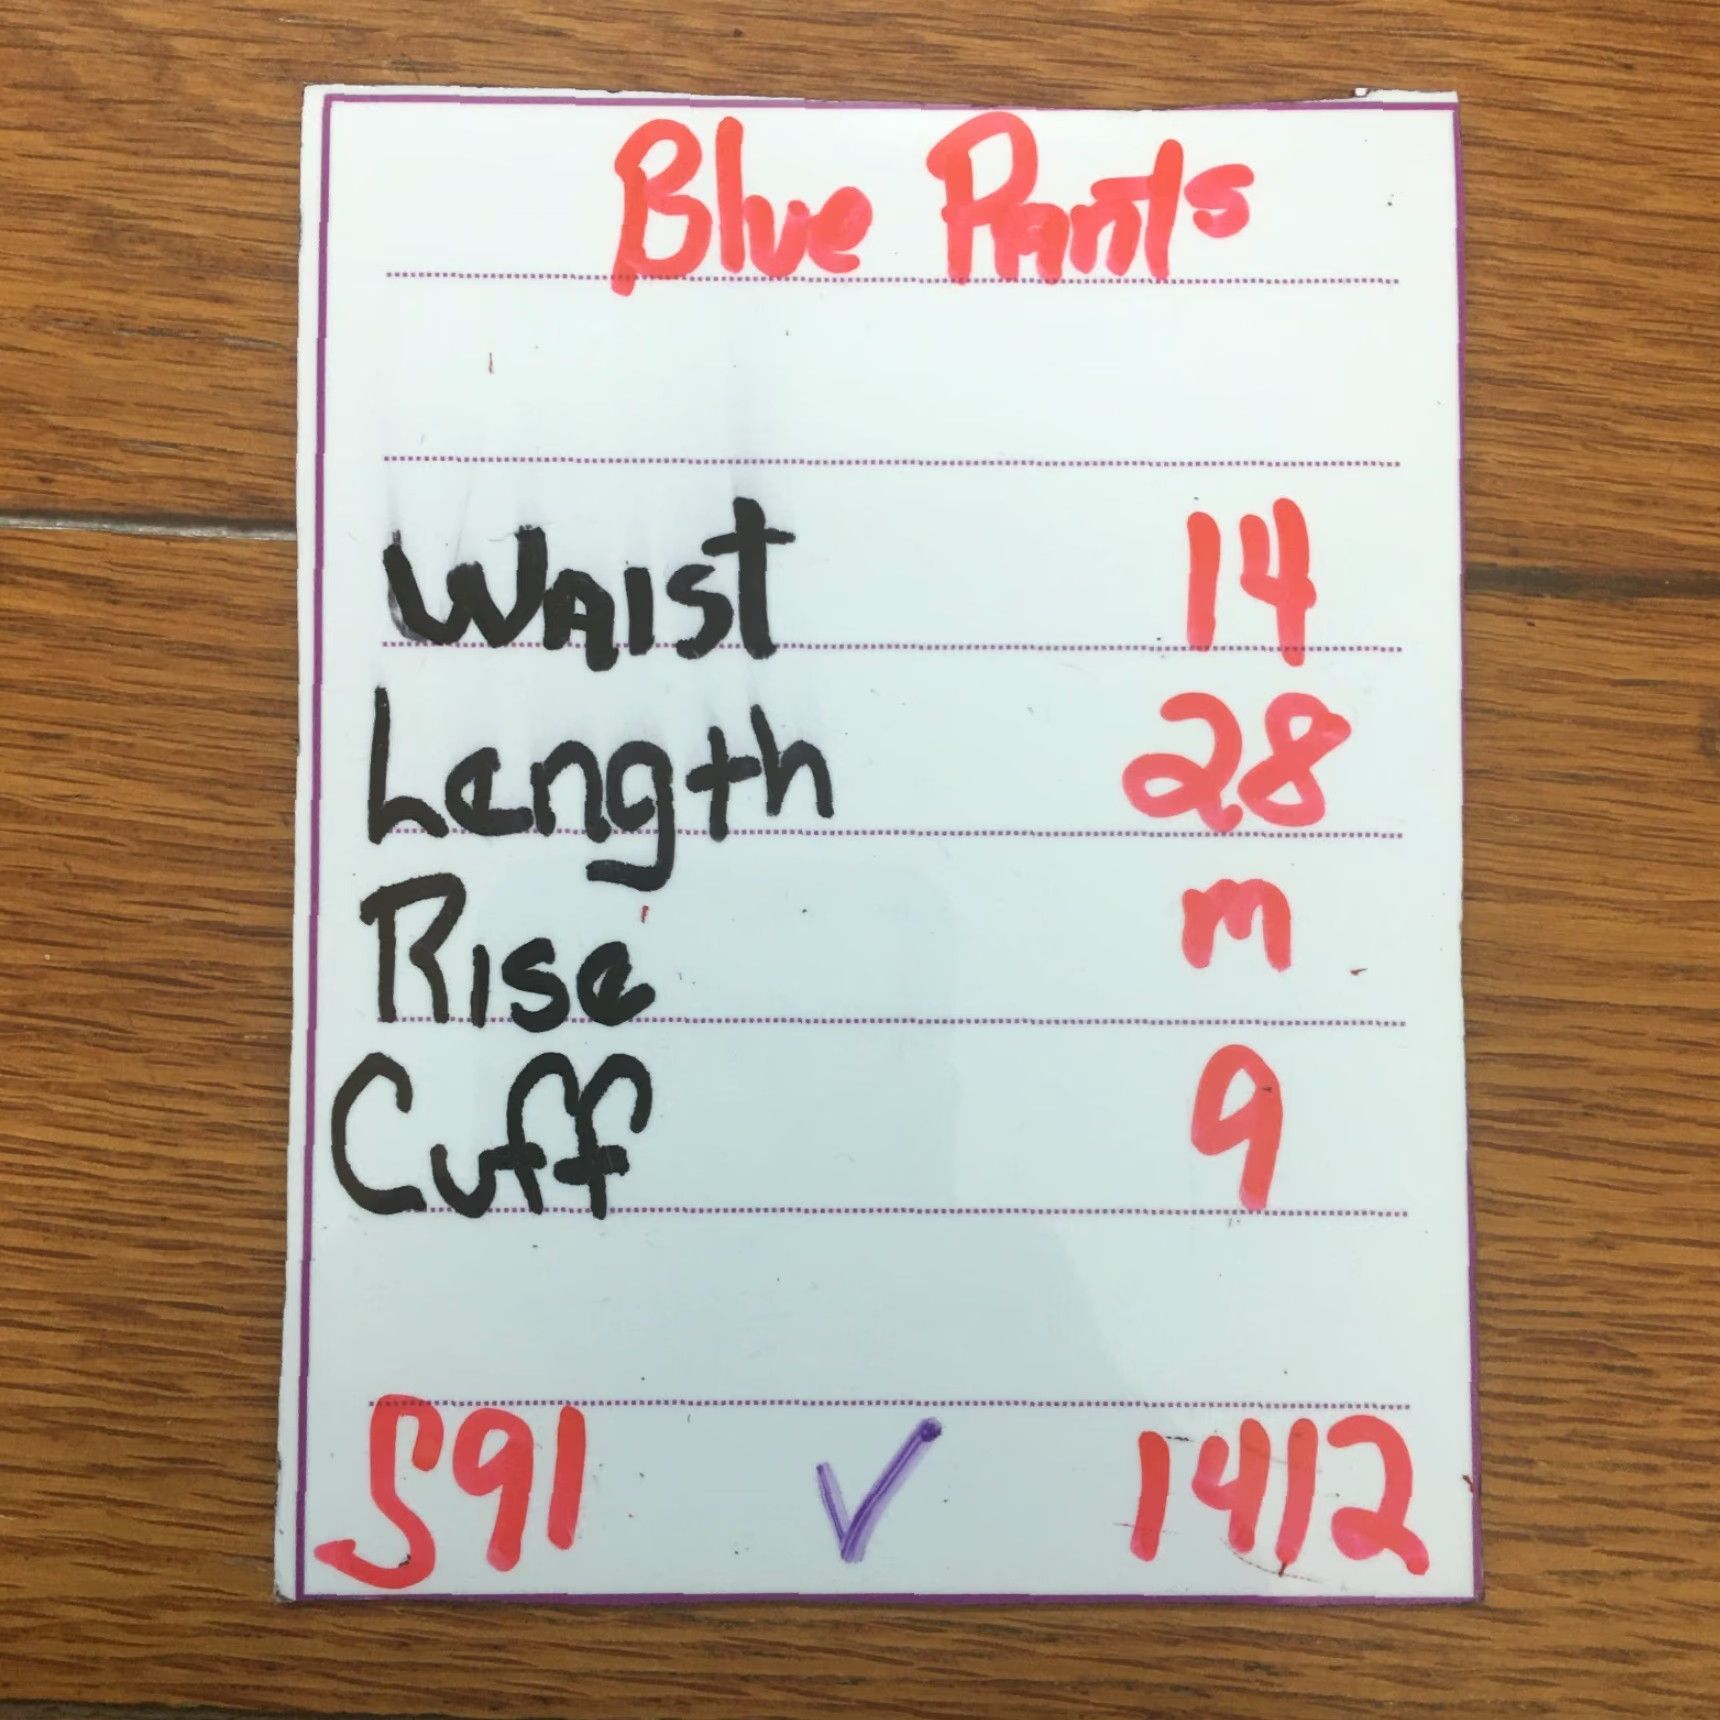 Blue Pants
Waist 14
Length 28
Rise m
Cuff 9
S91 ✓ 1412